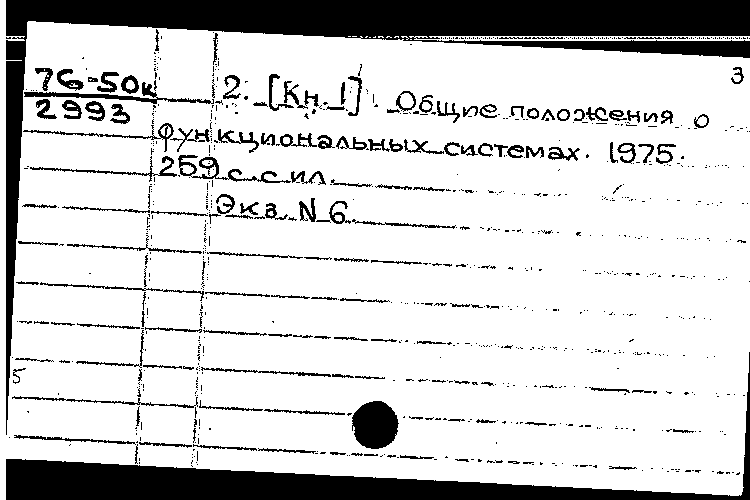 3
76-50к
2993
2. [Кн. 1]. Общие положения о
функциональных системах. 1975.
259 с. с ил.
Экз. N 6.
5